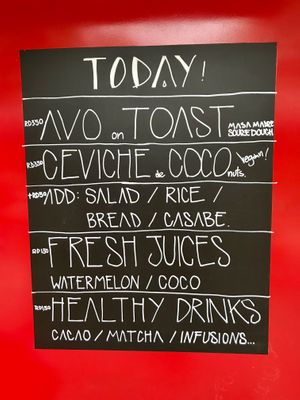 TODAY!
RD350 AVO on TOAST MASA MADRE SOURDOUGH
RD350 CEVICHE de COCOnuts. vegan!
+RD50 ADD: SALAD / RICE /
BREAD / CASABE.
RD150 FRESH JUICES
WATERMELON / COCO
RD150 HEALTHY DRINKS
CACAO / MATCHA / INFUSIONS...